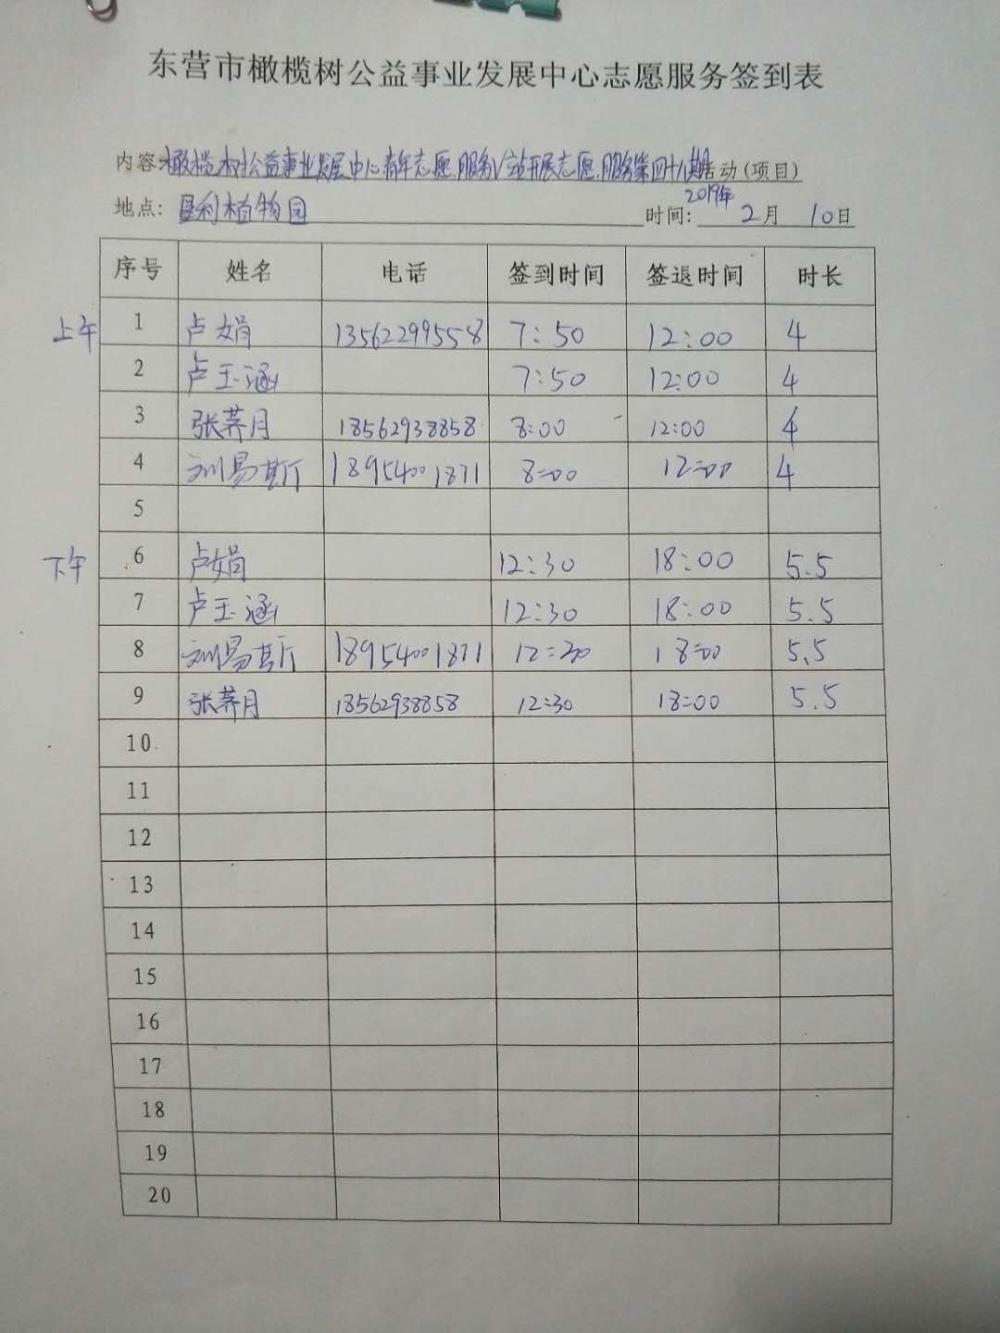 东营市橄榄树公益事业发展中心志愿服务签到表
内容:橄榄树公益事业发展中心青年志愿服务V站开展志愿服务第四十八期活动(项目)
地点:垦利植物园 时间:2019年2月10日
序号 姓名 电话 签到时间 签退时间 时长
上午 1 卢娟 13562299558 7:50 12:00 4
2 卢玉涵 7:50 12:00 4
3 张荠月 18562938858 8:00 12:00 4
4 刘易斯 18954001871 8:00 12:00 4
5
下午 6 卢娟 12:30 18:00 5.5
7 卢玉涵 12:30 18:00 5.5
8 刘易斯 18954001871 12:30 18:00 5.5
9 张荠月 18562938858 12:30 18:00 5.5
10
11
12
13
14
15
16
17
18
19
20